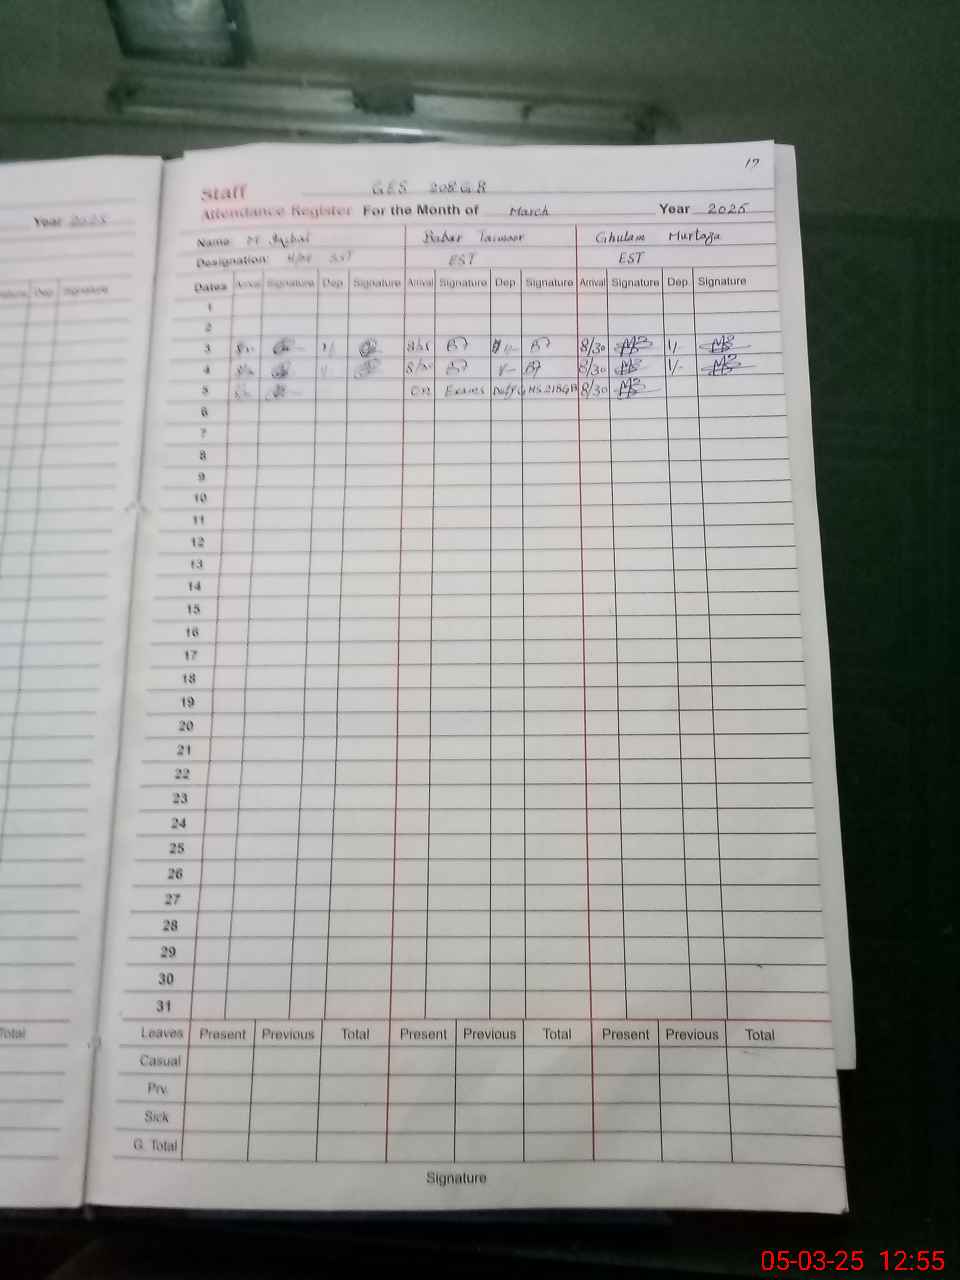 17
Staff GES 208GB
Attendance Register For the Month of March Year 2025
Year 2025
Name M Iqbal Babar Taimoor Ghulam Murtaza
Designation: SST EST EST
Dates Arrival Signature Dep. Signature Arrival Signature Dep. Signature Arrival Signature Dep. Signature
Dep. Signature
1
2
3 1/- 8/30 1/-
4 1/- 8/30 1/-
5 On Exams Duty GHS 218GB 8/30
6
7
8
9
10
11
12
13
14
15
16
17
18
19
20
21
22
23
24
25
26
27
28
29
30
31
Total
Leaves Present Previous Total Present Previous Total Present Previous Total
Casual
Prv.
Sick
G. Total
Signature
05-03-25 12:55